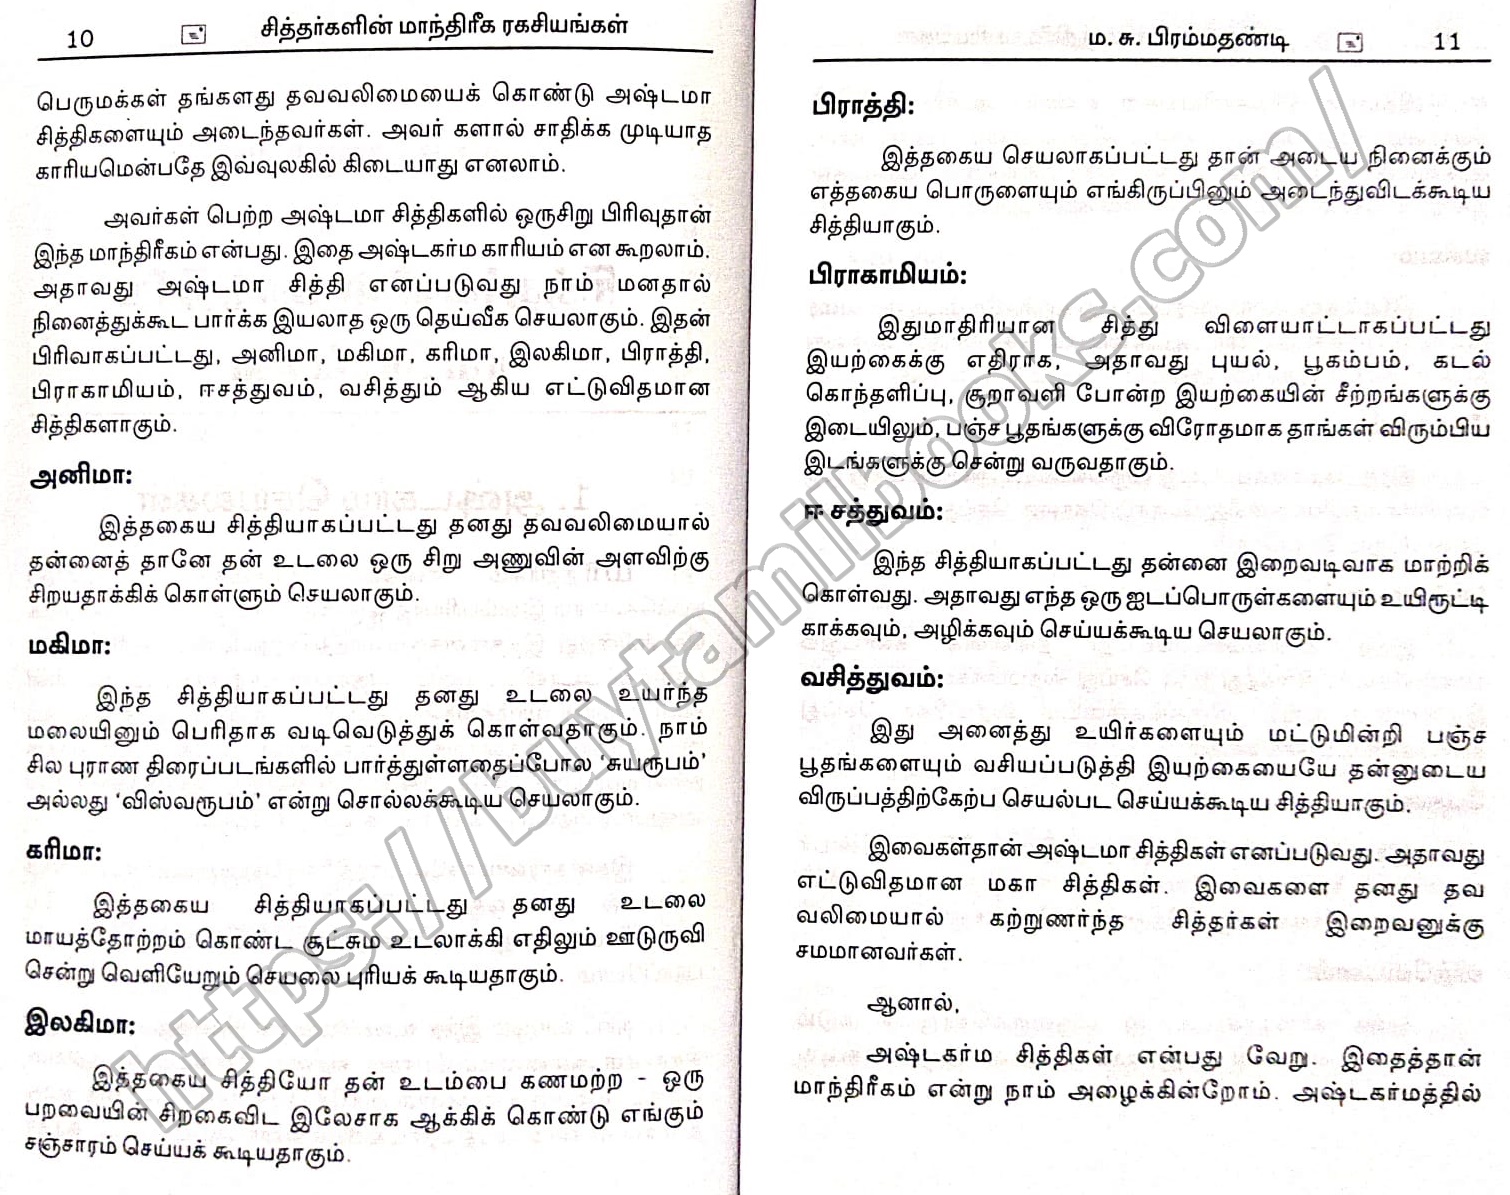 10 சித்தர்களின் மாந்திரீக ரகசியங்கள்
பெருமக்கள் தங்களது தவவலிமையைக் கொண்டு அஷ்டமா
சித்திகளையும் அடைந்தவர்கள். அவர் களால் சாதிக்க முடியாத
காரியமென்பதே இவ்வுலகில் கிடையாது எனலாம்.
அவர்கள் பெற்ற அஷ்டமா சித்திகளில் ஒருசிறு பிரிவுதான்
இந்த மாந்திரீகம் என்பது. இதை அஷ்டகர்ம காரியம் என கூறலாம்.
அதாவது அஷ்டமா சித்தி எனப்படுவது நாம் மனதால்
நினைத்துக்கூட பார்க்க இயலாத ஒரு தெய்வீக செயலாகும். இதன்
பிரிவாகப்பட்டது, அனிமா, மகிமா, கரிமா, இலகிமா, பிராத்தி,
பிராகாமியம், ஈசத்துவம், வசித்தும் ஆகிய எட்டுவிதமான
சித்திகளாகும்.
அனிமா:
இத்தகைய சித்தியாகப்பட்டது தனது தவவலிமையால்
தன்னைத் தானே தன் உடலை ஒரு சிறு அணுவின் அளவிற்கு
சிறயதாக்கிக் கொள்ளும் செயலாகும்.
மகிமா:
இந்த சித்தியாகப்பட்டது தனது உடலை உயர்ந்த
மலையினும் பெரிதாக வடிவெடுத்துக் கொள்வதாகும். நாம்
சில புராண திரைப்படங்களில் பார்த்துள்ளதைப்போல ‘சுயரூபம்’
அல்லது ‘விஸ்வரூபம்’ என்று சொல்லக்கூடிய செயலாகும்.
கரிமா:
இத்தகைய சித்தியாகப்பட்டது தனது உடலை
மாயத்தோற்றம் கொண்ட சூட்சும உடலாக்கி எதிலும் ஊடுருவி
சென்று வெளியேறும் செயலை புரியக் கூடியதாகும்.
இலகிமா:
இத்தகைய சித்தியோ தன் உடம்பை கணமற்ற - ஒரு
பறவையின் சிறகைவிட இலேசாக ஆக்கிக் கொண்டு எங்கும்
சஞ்சாரம் செய்யக் கூடியதாகும்.
ம. சு. பிரம்மதண்டி 11
பிராத்தி:
இத்தகைய செயலாகப்பட்டது தான் அடைய நினைக்கும்
எத்தகைய பொருளையும் எங்கிருப்பினும் அடைந்துவிடக்கூடிய
சித்தியாகும்.
பிராகாமியம்:
இதுமாதிரியான சித்து விளையாட்டாகப்பட்டது
இயற்கைக்கு எதிராக, அதாவது புயல், பூகம்பம், கடல்
கொந்தளிப்பு, சூறாவளி போன்ற இயற்கையின் சீற்றங்களுக்கு
இடையிலும், பஞ்ச பூதங்களுக்கு விரோதமாக தாங்கள் விரும்பிய
இடங்களுக்கு சென்று வருவதாகும்.
ஈ சத்துவம்:
இந்த சித்தியாகப்பட்டது தன்னை இறைவடிவாக மாற்றிக்
கொள்வது. அதாவது எந்த ஒரு ஐடப்பொருள்களையும் உயிரூட்டி
காக்கவும், அழிக்கவும் செய்யக்கூடிய செயலாகும்.
வசித்துவம்:
இது அனைத்து உயிர்களையும் மட்டுமின்றி பஞ்ச
பூதங்களையும் வசியப்படுத்தி இயற்கையையே தன்னுடைய
விருப்பத்திற்கேற்ப செயல்பட செய்யக்கூடிய சித்தியாகும்.
இவைகள்தான் அஷ்டமா சித்திகள் எனப்படுவது. அதாவது
எட்டுவிதமான மகா சித்திகள். இவைகளை தனது தவ
வலிமையால் கற்றுணர்ந்த சித்தர்கள் இறைவனுக்கு
சமமானவர்கள்.
ஆனால்,
அஷ்டகர்ம சித்திகள் என்பது வேறு. இதைத்தான்
மாந்திரீகம் என்று நாம் அழைக்கின்றோம். அஷ்டகர்மத்தில்
https://buytamilbooks.com/